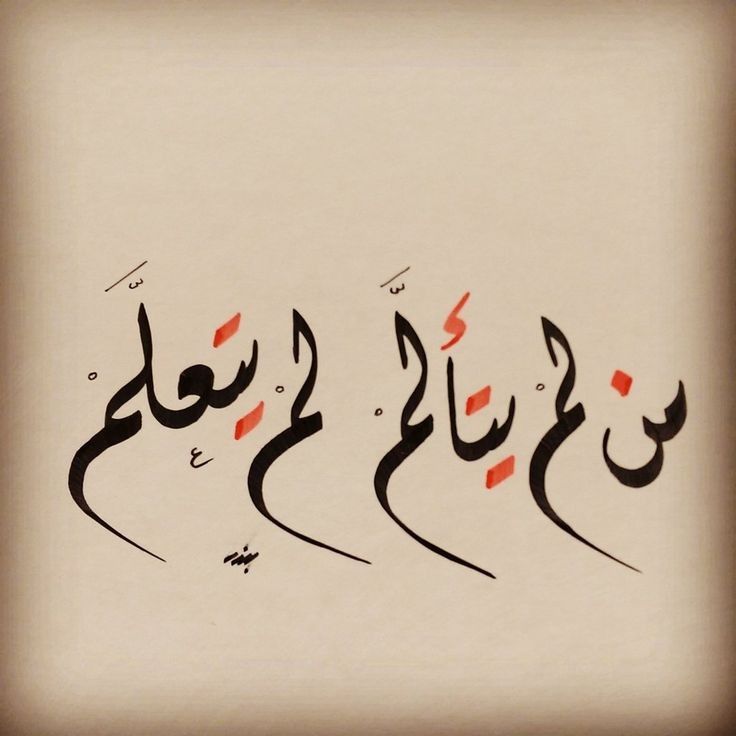 من لمْ يتألَّمْ لمْ يتعلَّمْ